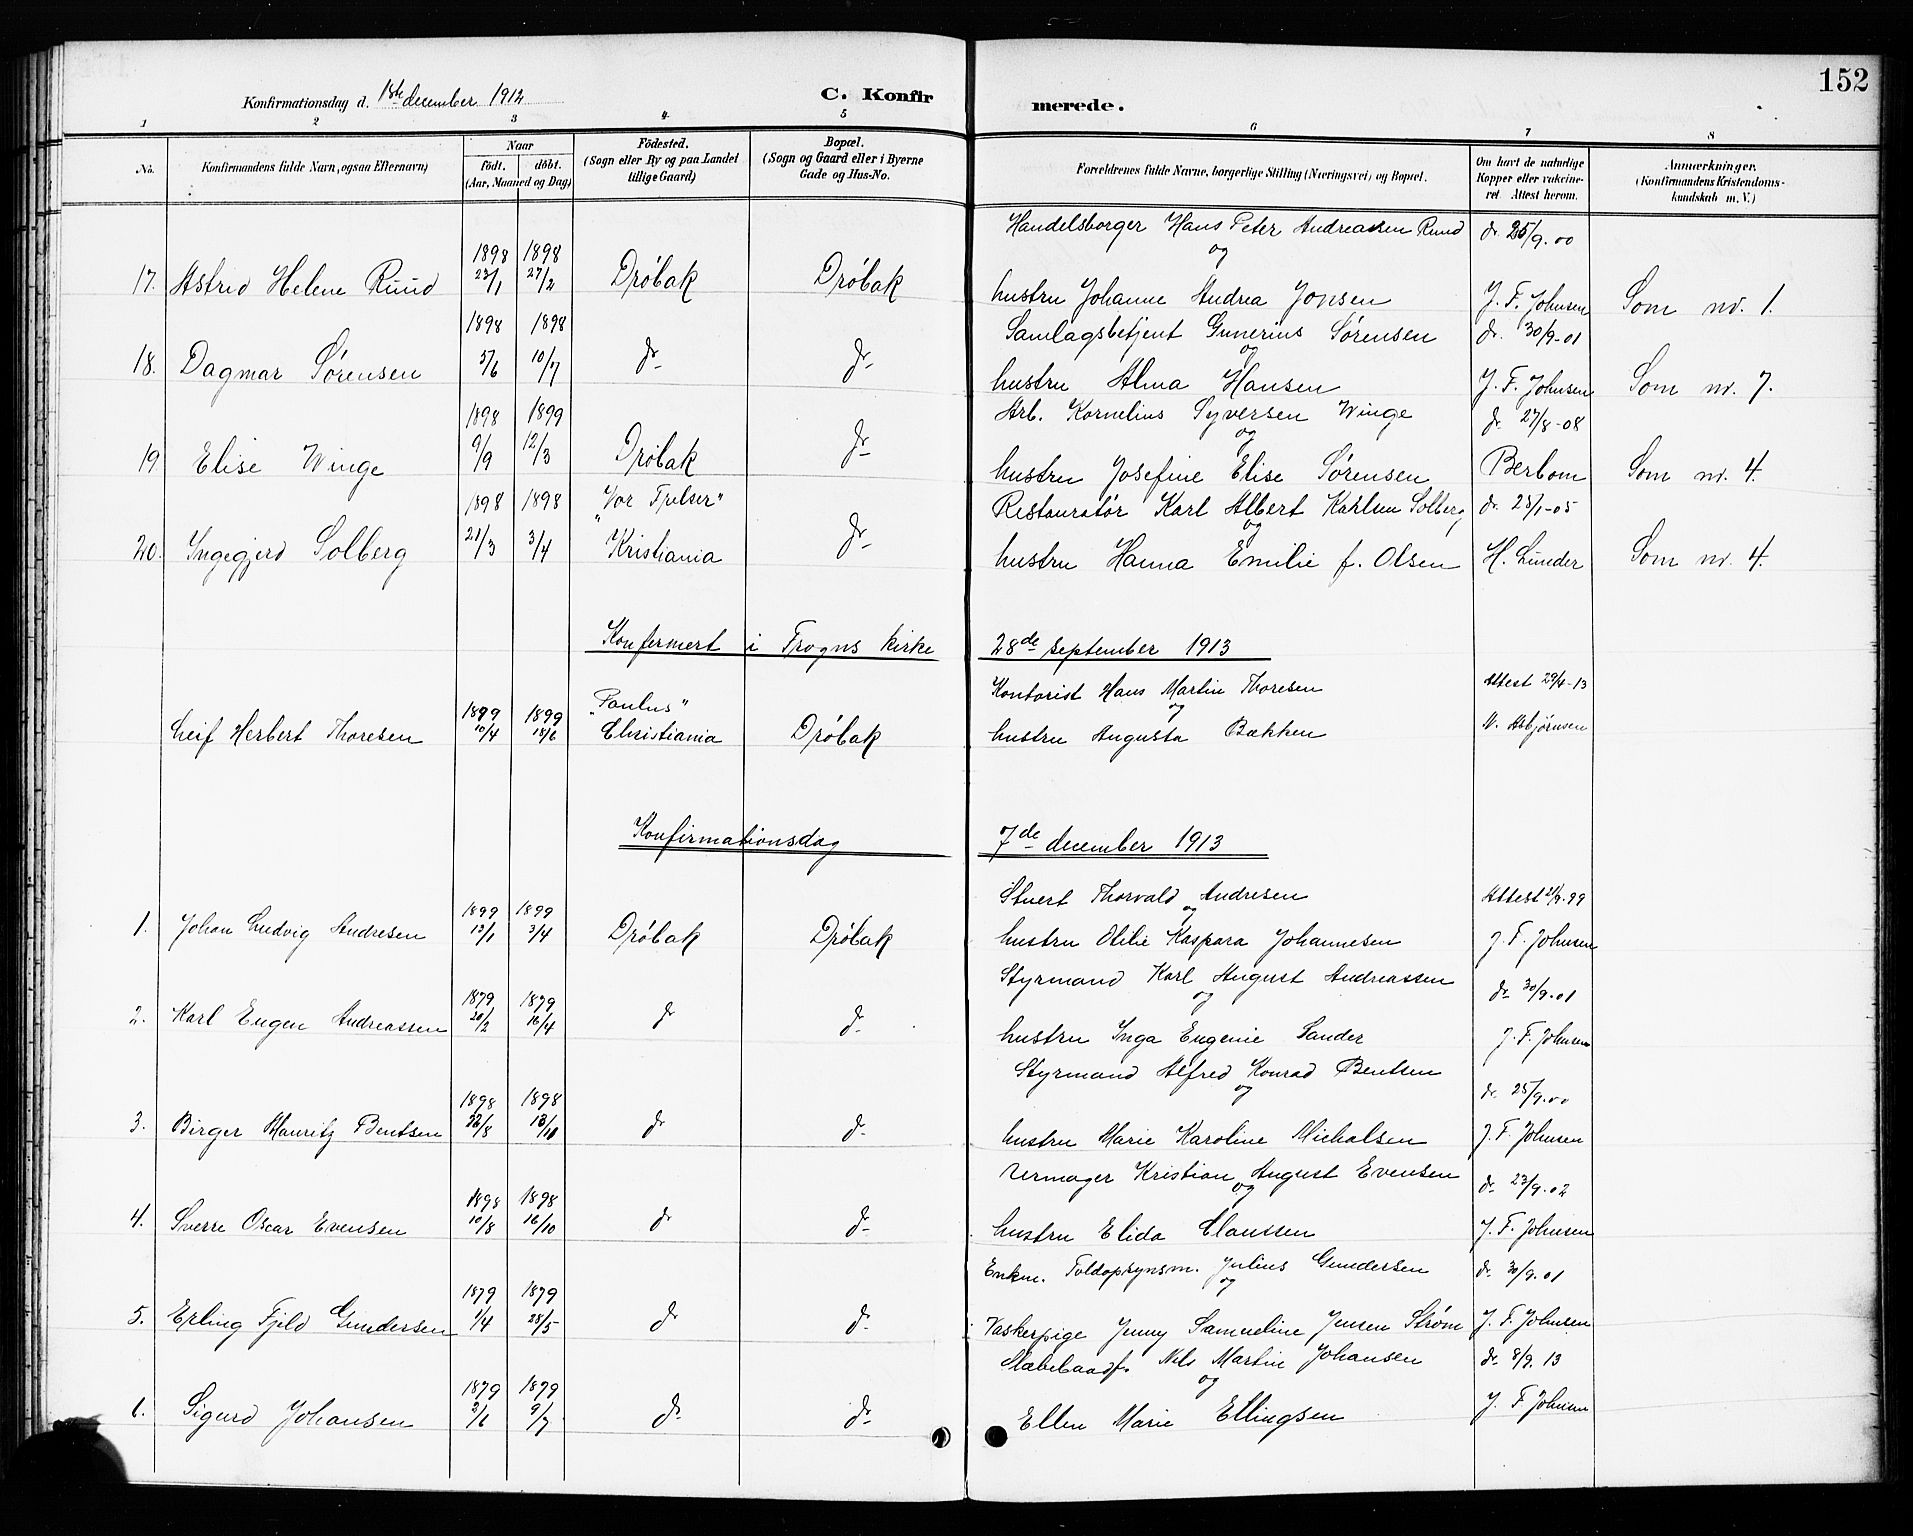 152
Konfirmationsdag d. 1ste december 1912
C. Konfir merede.
1 2 3 4 5 6 7 8
No.
Konfirmandens fulde Navn, ogsaa Efternavn)
Naar
födt. döbt.
(Aar, Maaned og Dag)
Födested.
(Sogn eller By og paa Landet
tillige Gaard)
Bopæl.
(Sogn og Gaard eller i Byerne
Gade og Hus-No.
Forældrenes fulde Navne, borgerlige Stilling (Næringsvei) og Bopæl.
Om havt de naturlige
Kopper eller vakcine-
ret. Attest herom.
Anmærkninger.
(Konfirmandens Kristendoms-
kundskab m. V.)
Handelsborger Hans Peter Andreasen Ruud dr. 25/9.00
1898 1898 og
17. Astrid Helene Ruud 23/1 27/2 Drøbak Drøbak hustru Johanne Andrea Jonsen J. F. Johnsen Som nr. 1.
1898 1898 Samlagsbetjent Gunerius Sørensen dr. 30/9-01
og
18. Dagmar Sørensen 5/6 10/7 dr dr hustru Alma Hansen J. F. Johnsen Som nr. 7.
1898 1899 Arb. Kornelius Syversen Winge dr. 27/8-08
og
19 Elise Winge 9/9 12/3 Drøbak dr hustru Josefine Elise Sørensen Berbom Som nr. 4.
1898 1898 "Vor Frelser" Restauratør Karl Albert Karlsen Solberg dr. 28/1-05
og
20. Ingegjerd Solberg 21/3 3/4 Kristiania dr hustru Hanna Emilie f. Olsen H. Lunder Som nr. 4.
Konfermert i Frogns kirke 28de september 1913
"Paulus" Kontorist Hans Martin Thoresen Attest 29/4-13
1899 1899 og
Leif Herbert Thoresen 10/4 18/6 Christiania Drøbak hustru Augusta Bækken N. Asbjørnsen
Konfirmationsdag 7de december 1913
Stuert Thorvald Andresen Attest 21/9.99
1899 1899 og
1. Johan Ludvig Andresen 13/1 3/4 Drøbak Drøbak hustru Otilie Kaspara Johannesen J. F. Johnsen
Styrmand Karl August Andreassen dr 30/9.01
1879 1879 og
2. Karl Eugen Andreassen 20/2 16/4 dr dr. hustru Inga Eugenie Sander J. F. Johnsen
Styrmand Alfred Konrad Bentsen
og dr. 25/9.00
1898 1898
3. Birger Mauritz Bentsen 22/8 13/10 dr dr. hustru Marie Karoline Micholsen J. F. Johnsen
Urmager Kristian August Evensen dr. 23/9.02
1898 1898 og
4. Sverre Oscar Evensen 10/8 16/10 dr dr. hustru Elida Claussen J. F. Johnsen
Enkm. Toldopsynsm. Julius Gundersen dr. 30/9.01
1879 1879 og
5. Erling Fjeld Gundersen 1/4 28/5 dr dr. Vaskerpige Jenny Samueline Jensen Strøm J. F. Johnsen
Nils Martin Johansen dr. 8/9.13
1879 1879 og
6. Sigurd Johansen 2/6 9/7 dr. dr. Ellen Marie Ellingsen J. F Johnsen